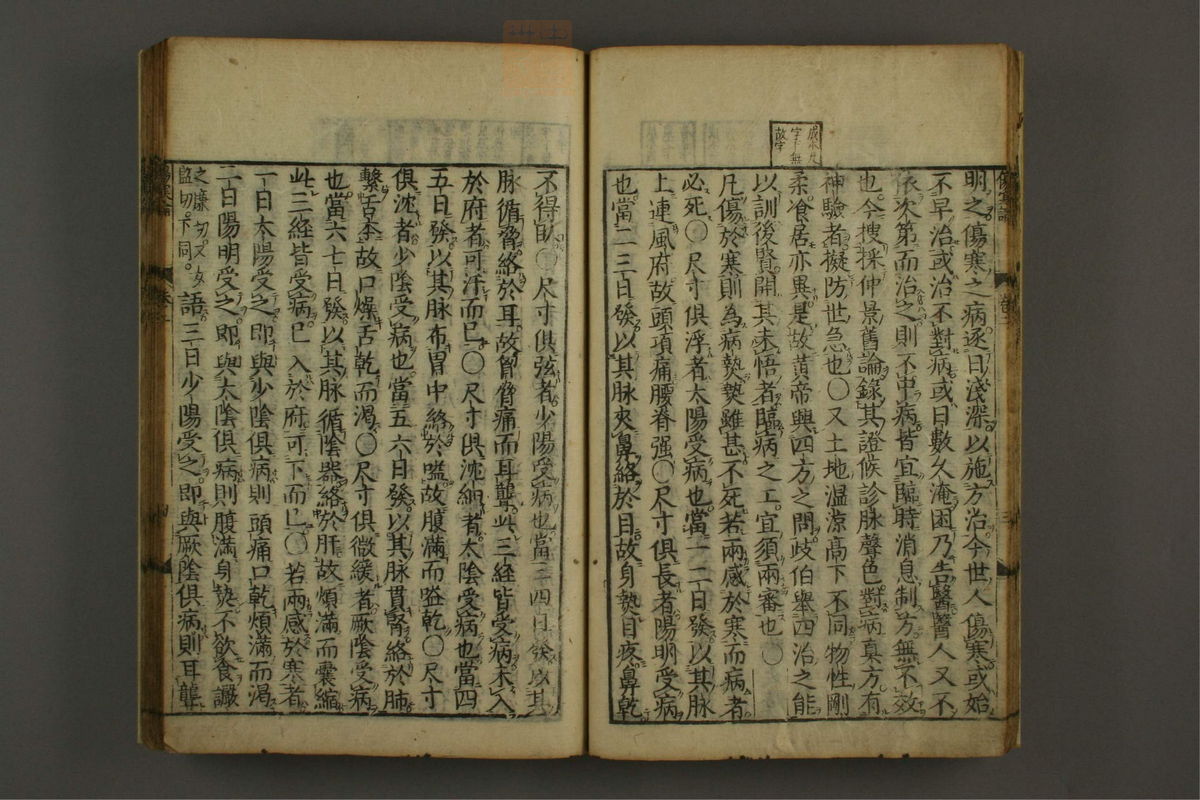 成本凡
字下無
故字
明之傷寒之病逐日淺深以施方治今世人傷寒或始
不早治或治不對病或日數久淹困乃告醫醫人又不
依次第而治之則不中病皆宜臨時消息制方無不效
也今搜採仲景舊論錄其證候診脉聲色對病真方有
神驗者擬防世急也〇又土地溫凉高下不同物性剛
柔飡居亦異是故黃帝興四方之問歧伯舉四治之能
以訓後賢開其未悟者臨病之工宜須兩審也〇
凡傷於寒則為病𤍠𤍠雖甚不死若兩感於寒而病者
必死〇尺寸俱浮者太陽受病也當一二日發以其脉
上連風府故頭項痛腰脊强〇尺寸俱長者陽明受病
也當二三日發以其脉夾鼻絡於目故身𤍠目疼鼻乾
不得臥〇尺寸俱弦者少陽受病也當三四日發以其
脉循脅絡於耳故胷脅痛而耳聾此三經皆受病未入
於府者可汗而已〇尺寸俱沈細者太陰受病也當四
五日發以其脉布胃中絡於嗌故腹滿而嗌乾〇尺寸
俱沈者少陰受病也當五六日發以其脉貫腎絡於肺
繫舌本故口燥舌乾而渴〇尺寸俱微緩者厥陰受病
也當六七日發以其脉循陰器絡於肝故煩滿而囊縮
此三經皆受病已入於府可下而已〇若兩感於寒者
一日太陽受之即與少陰俱病則頭痛口乾煩滿而渴
二日陽明受之即與太陰俱病則腹滿身𤍠不欲食譫
之廉切又女
監切下同。語三日少陽受之即與厥陰俱病則耳聾